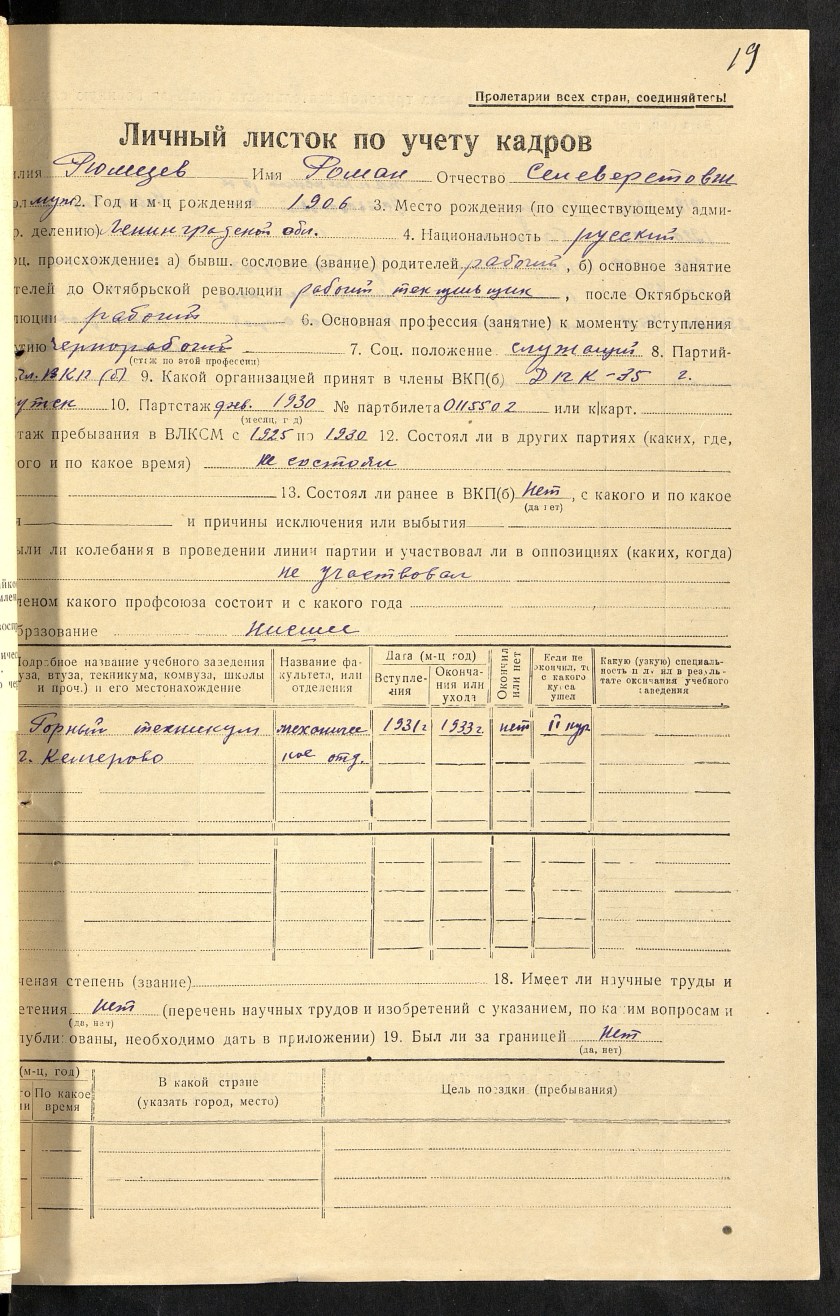 19
Пролетарии всех стран, соединяйтесь!
Личный листок по учету кадров
илия Румцев Имя Роман Отчество Селеверстович
ол муж 2. Год и м-ц рождения 1906 3. Место рождения (по существующему адми-
р. делению) Ленинградской обл. 4. Национальность русский
оц. происхождение: а) бывш. сословие (звание) родителей рабочий, б) основное занятие
телей до Октябрьской революции рабочий текстильщик, после Октябрьской
люции рабочий 6. Основная профессия (занятие) к моменту вступления
тию чернорабочий 7. Соц. положение служащий 8. Партий-
(стаж по этой профессии)
чл. ВКП(б) 9. Какой организацией принят в члены ВКП(б) ДПК-35 г.
10. Партстаж янв. 1930 № партбилета 0115502 или к|карт.
(месяц, г д)
таж пребывания в ВЛКСМ с 1925 по 1930 12. Состоял ли в других партиях (каких, где,
ого и по какое время) не состоял
13. Состоял ли ранее в ВКП(б) Нет, с какого и по какое
(да нет)
я и причины исключения или выбытия
ыли ли колебания в проведении линии партии и участвовал ли в оппозициях (каких, когда)
не участвовал
леном какого профсоюза состоит и с какого года
бразование Низшее
Подробное название учебного заведения (вуза, втуза, техникума, комвуза, школы и проч.) и его местонахождение
Название факультета, или отделения
Дата (м-ц год)
Вступления
Окончания или ухода
Окончил или нет
Если не окончил, то с какого курса ушел
Какую (узкую) специальность получил в результате окончания учебного заведения
Горный техникум механичес 1931 г 1933 г. нет II кур
г. Кемерово кое отд.
ченая степень (звание) 18. Имеет ли научные труды и
етения Нет (перечень научных трудов и изобретений с указанием, по каким вопросам и
(да, нет)
публикованы, необходимо дать в приложении) 19. Был ли за границей Нет
(да, нет)
(м-ц, год)
По какое время
В какой стране
(указать город, место)
Цель поездки (пребывания)